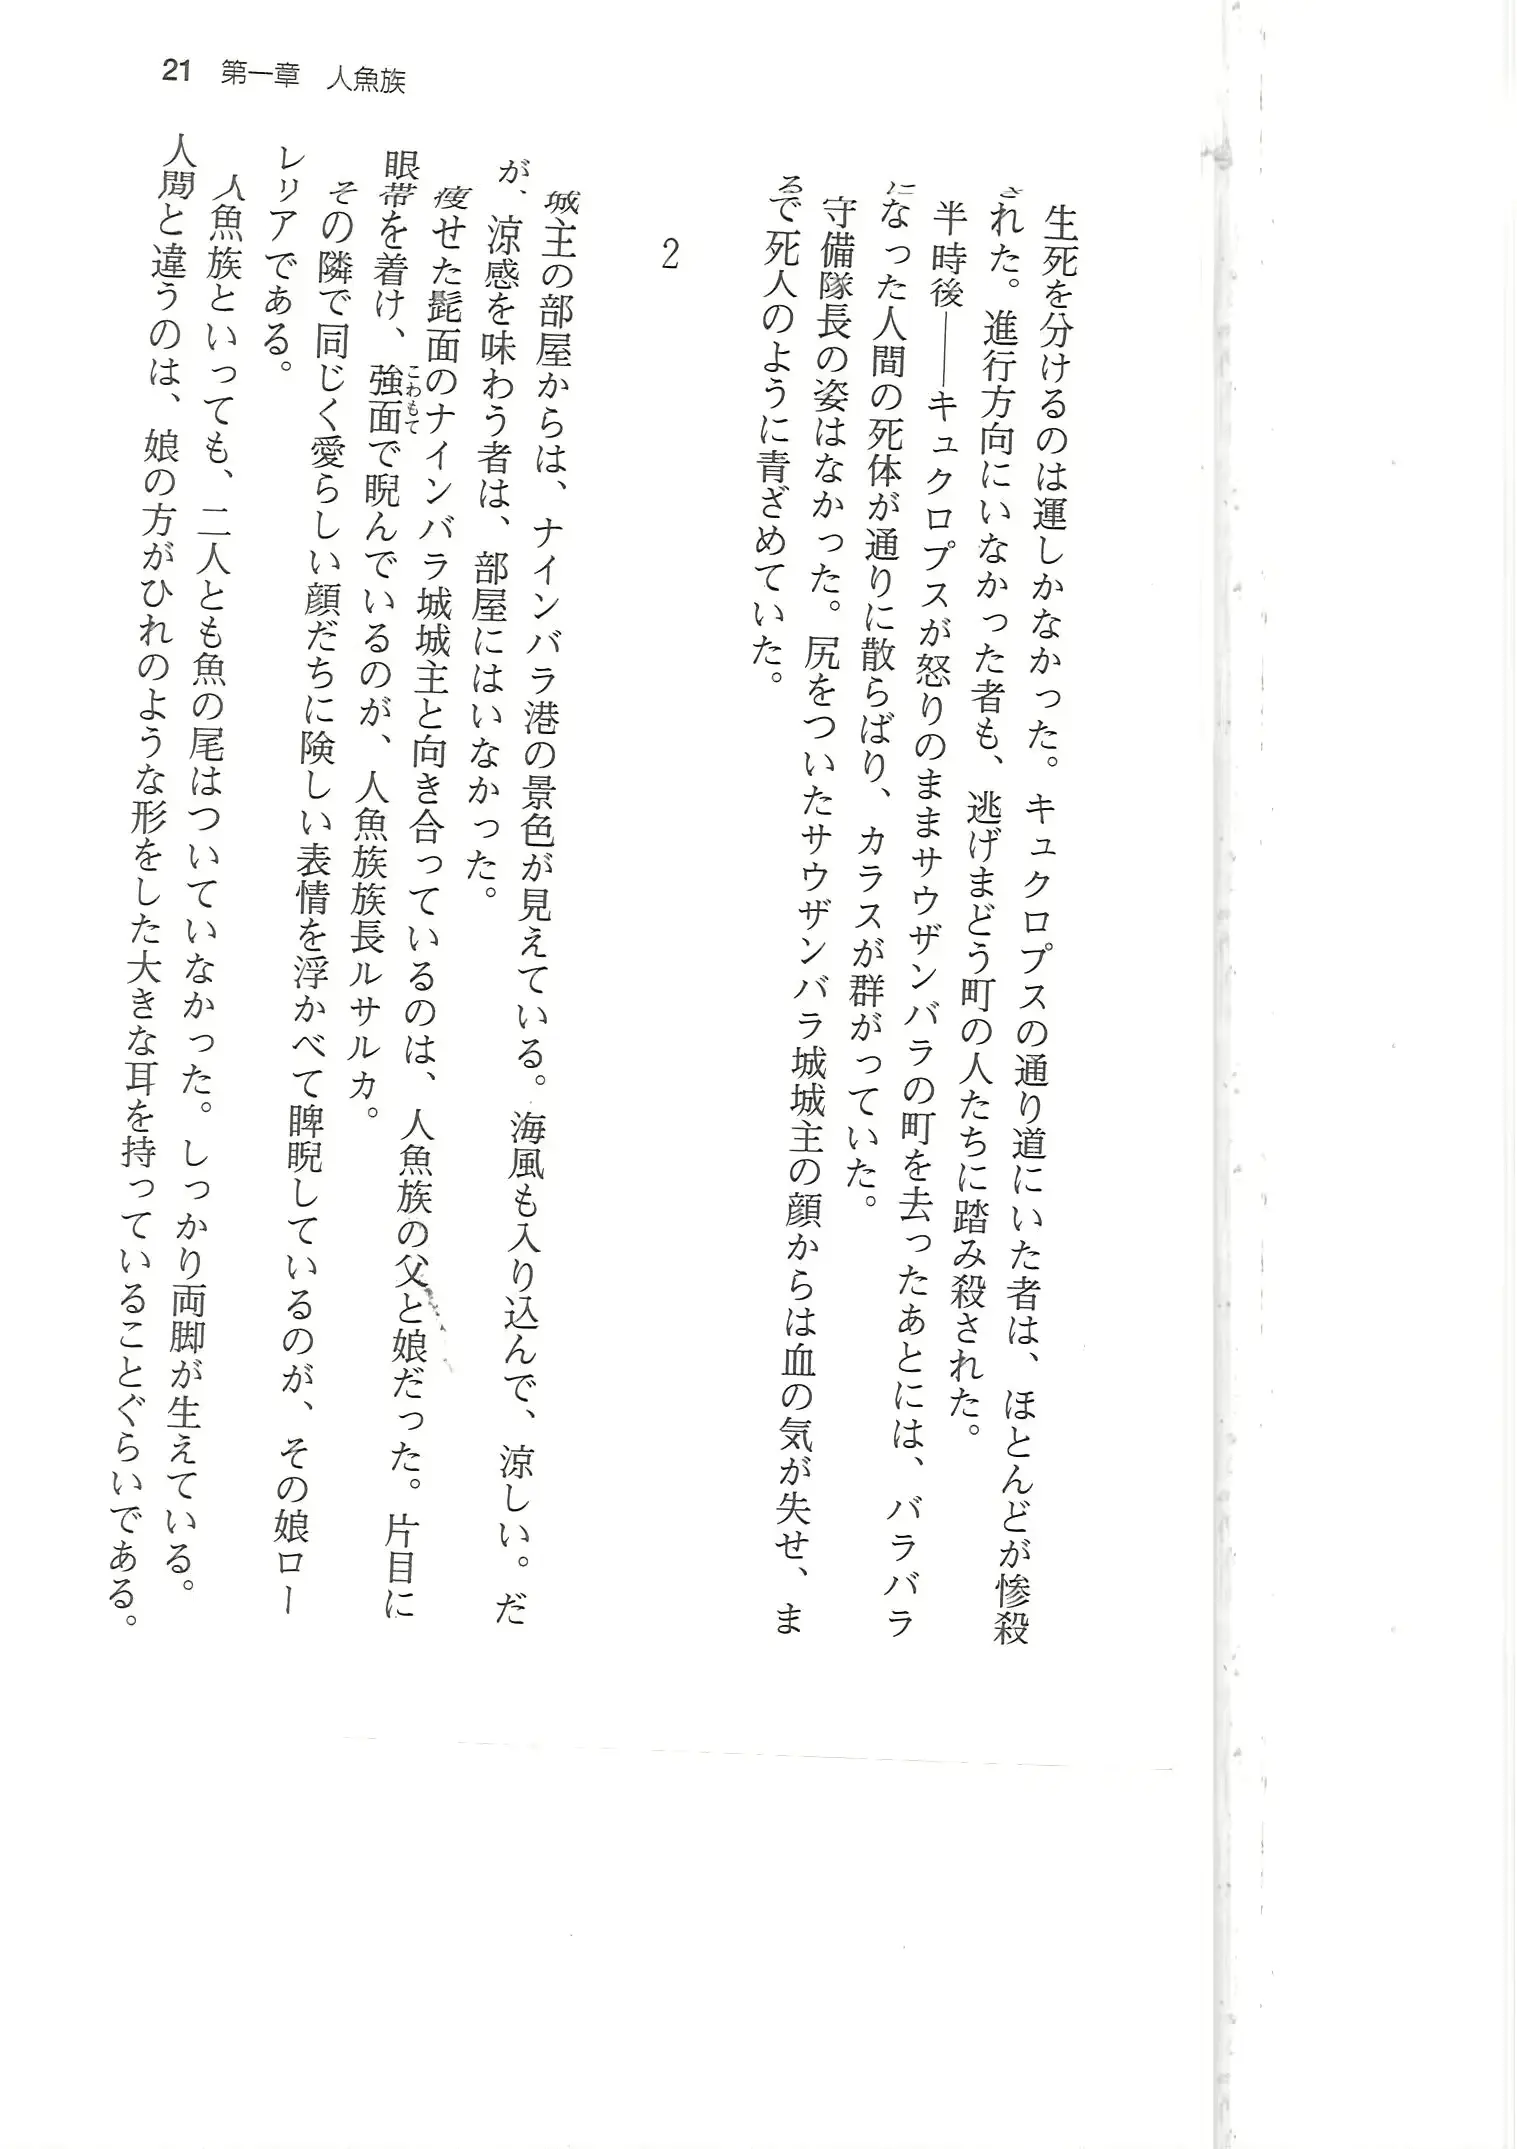 21　第一章　人魚族
　生死を分けるのは運しかなかった。キュクロプスの通り道にいた者は、ほとんどが惨殺
された。進行方向にいなかった者も、逃げまどう町の人たちに踏み殺された。
　半時後――キュクロプスが怒りのままサウザンバラの町を去ったあとには、バラバラ
になった人間の死体が通りに散らばり、カラスが群がっていた。
　守備隊長の姿はなかった。尻をついたサウザンバラ城城主の顔からは血の気が失せ、ま
るで死人のように青ざめていた。
2
　城主の部屋からは、ナインバラ港の景色が見えている。海風も入り込んで、涼しい。だ
が、涼感を味わう者は、部屋にはいなかった。
　痩せた髭面のナインバラ城城主と向き合っているのは、人魚族の父と娘だった。片目に
眼帯を着け、強面こわもてで睨んでいるのが、人魚族族長ルサルカ。
　その隣で同じく愛らしい顔だちに険しい表情を浮かべて睥睨しているのが、その娘ロー
レリアである。
　人魚族といっても、二人とも魚の尾はついていなかった。しっかり両脚が生えている。
人間と違うのは、娘の方がひれのような形をした大きな耳を持っていることぐらいである。